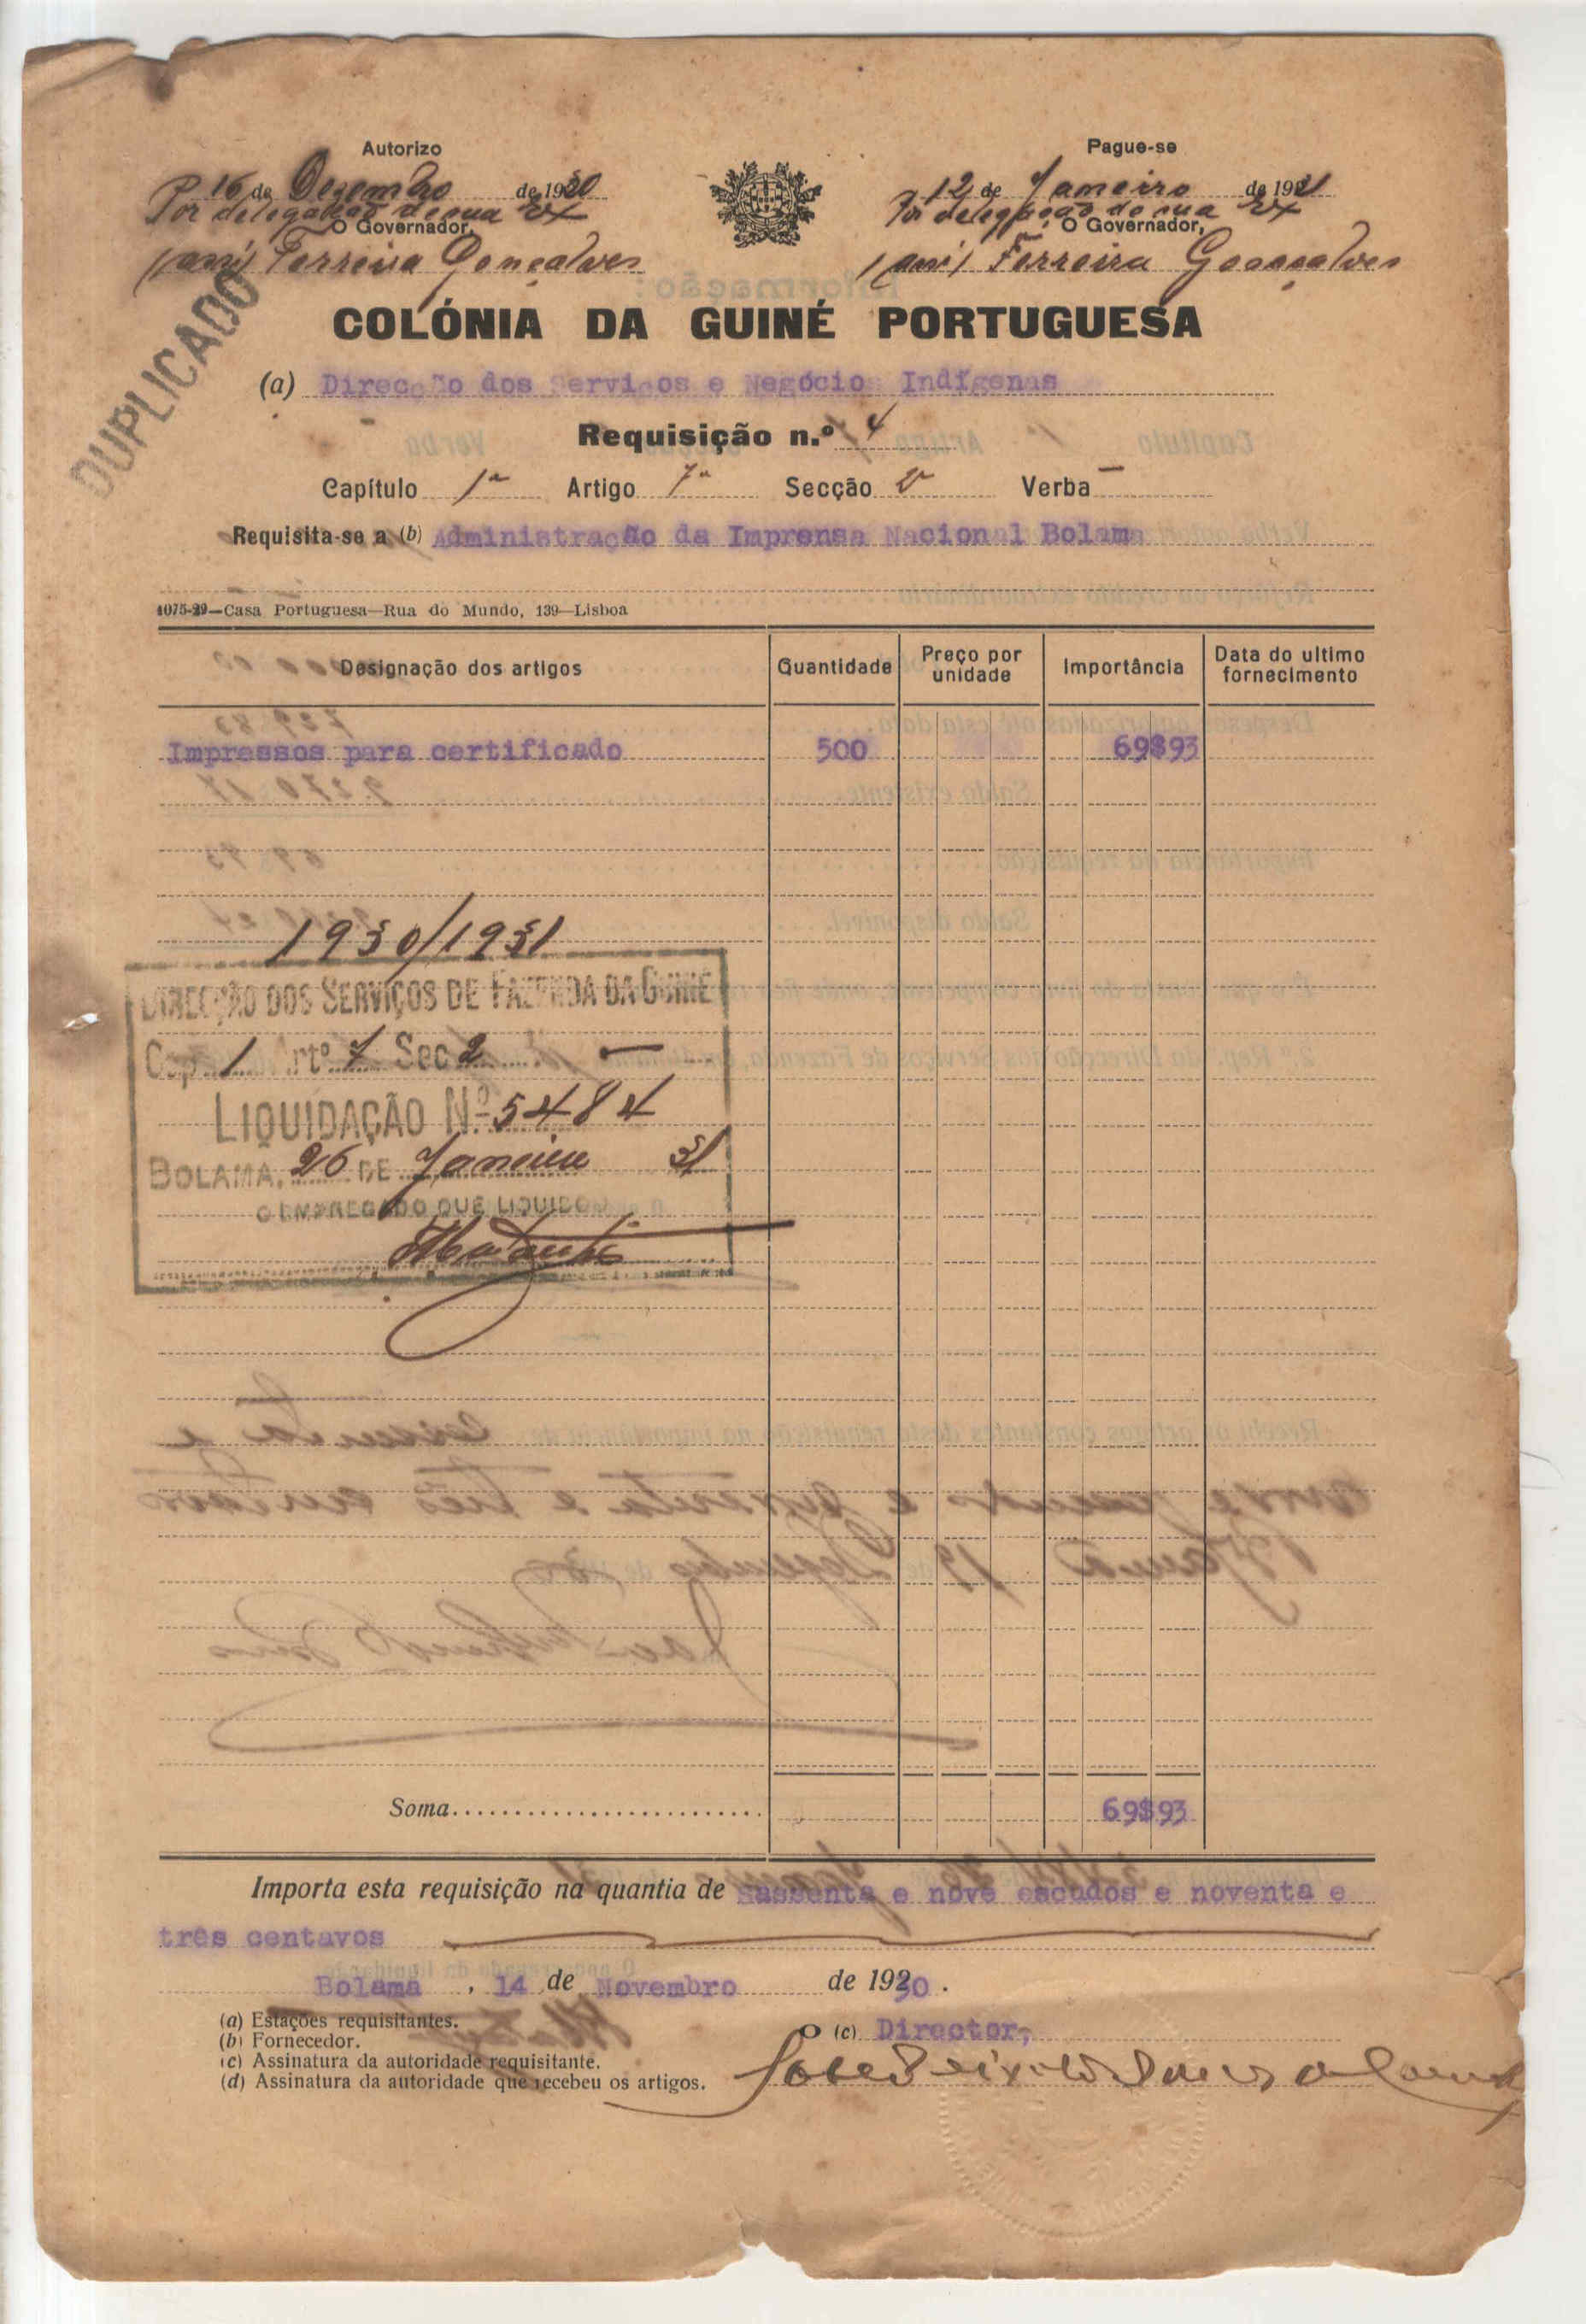 Autorizo
16 de Dezembro de 1930
Por delegação de sua Ex
O Governador,
Ferreira Gonçalves
Pague-se
12 de Janeiro de 1931
Por delegação de sua Ex
O Governador,
Ferreira Gonçalves
DUPLICADO
COLÓNIA DA GUINÉ PORTUGUESA
(a) Direcção dos Serviços e Negócios Indígenas
Requisição n.º 4
Capítulo 1º Artigo 7º Secção 2ª Verba —
Requisita-se a (b) Administração da Imprensa Nacional Bolama
1075-29—Casa Portuguesa—Rua do Mundo, 139—Lisboa
Designação dos artigos Quantidade Preço por unidade Importância Data do ultimo fornecimento
Impressos para certificado 500 69$93
1930/1931
DIRECÇÃO DOS SERVIÇOS DE FAZENDA DA GUINÉ
Cap 1 Artº 7 Sec 2 —
LIQUIDAÇÃO Nº 5484
BOLAMA, 26 DE Janeiro 31
O EMPREGADO QUE LIQUIDOU
Soma 69$93
Importa esta requisição na quantia de sassenta e nove escudos e noventa e
três centavos
Bolama, 14 de Novembro de 1930.
(a) Estações requisitantes.
(b) Fornecedor.
(c) Assinatura da autoridade requisitante.
(d) Assinatura da autoridade que recebeu os artigos.
O (c) Director,